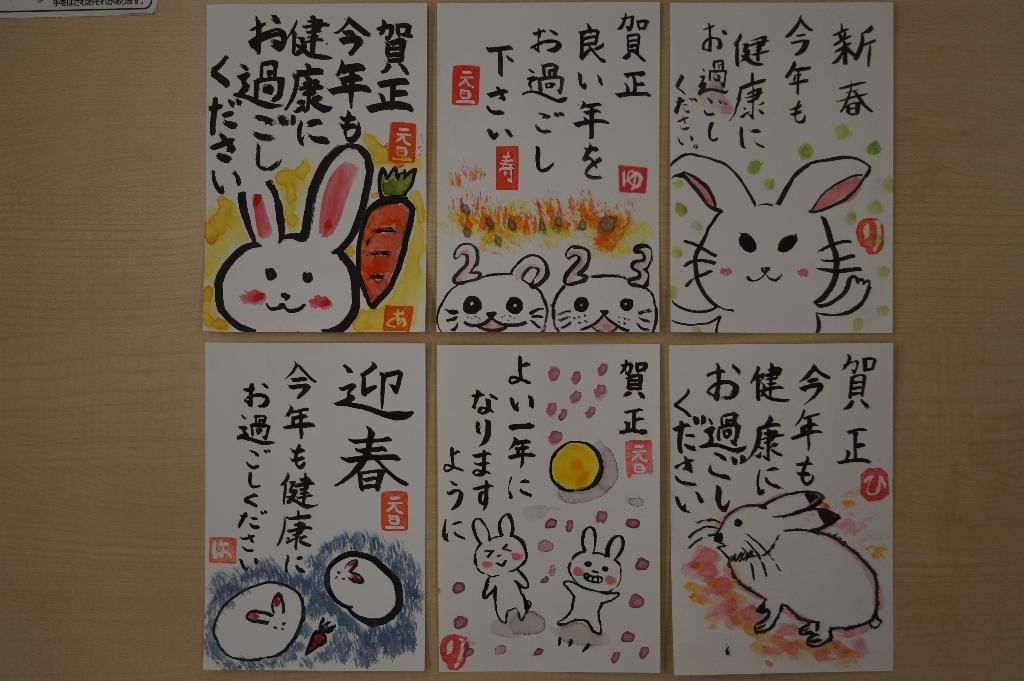 手をはさむおそれがあります。
賀正
今年も
健康に
お過ごし
ください
元旦
あ
賀正
良い年を
お過ごし
下さい
元旦
寿
ゆ
2
2 3
新春
今年も
健康に
お過ごし
ください。
り
迎春
今年も健康に
お過ごしください
元旦
は
賀正
よい一年に
なります
ように
元旦
り
賀正
今年も
健康に
お過ごし
ください
ひ